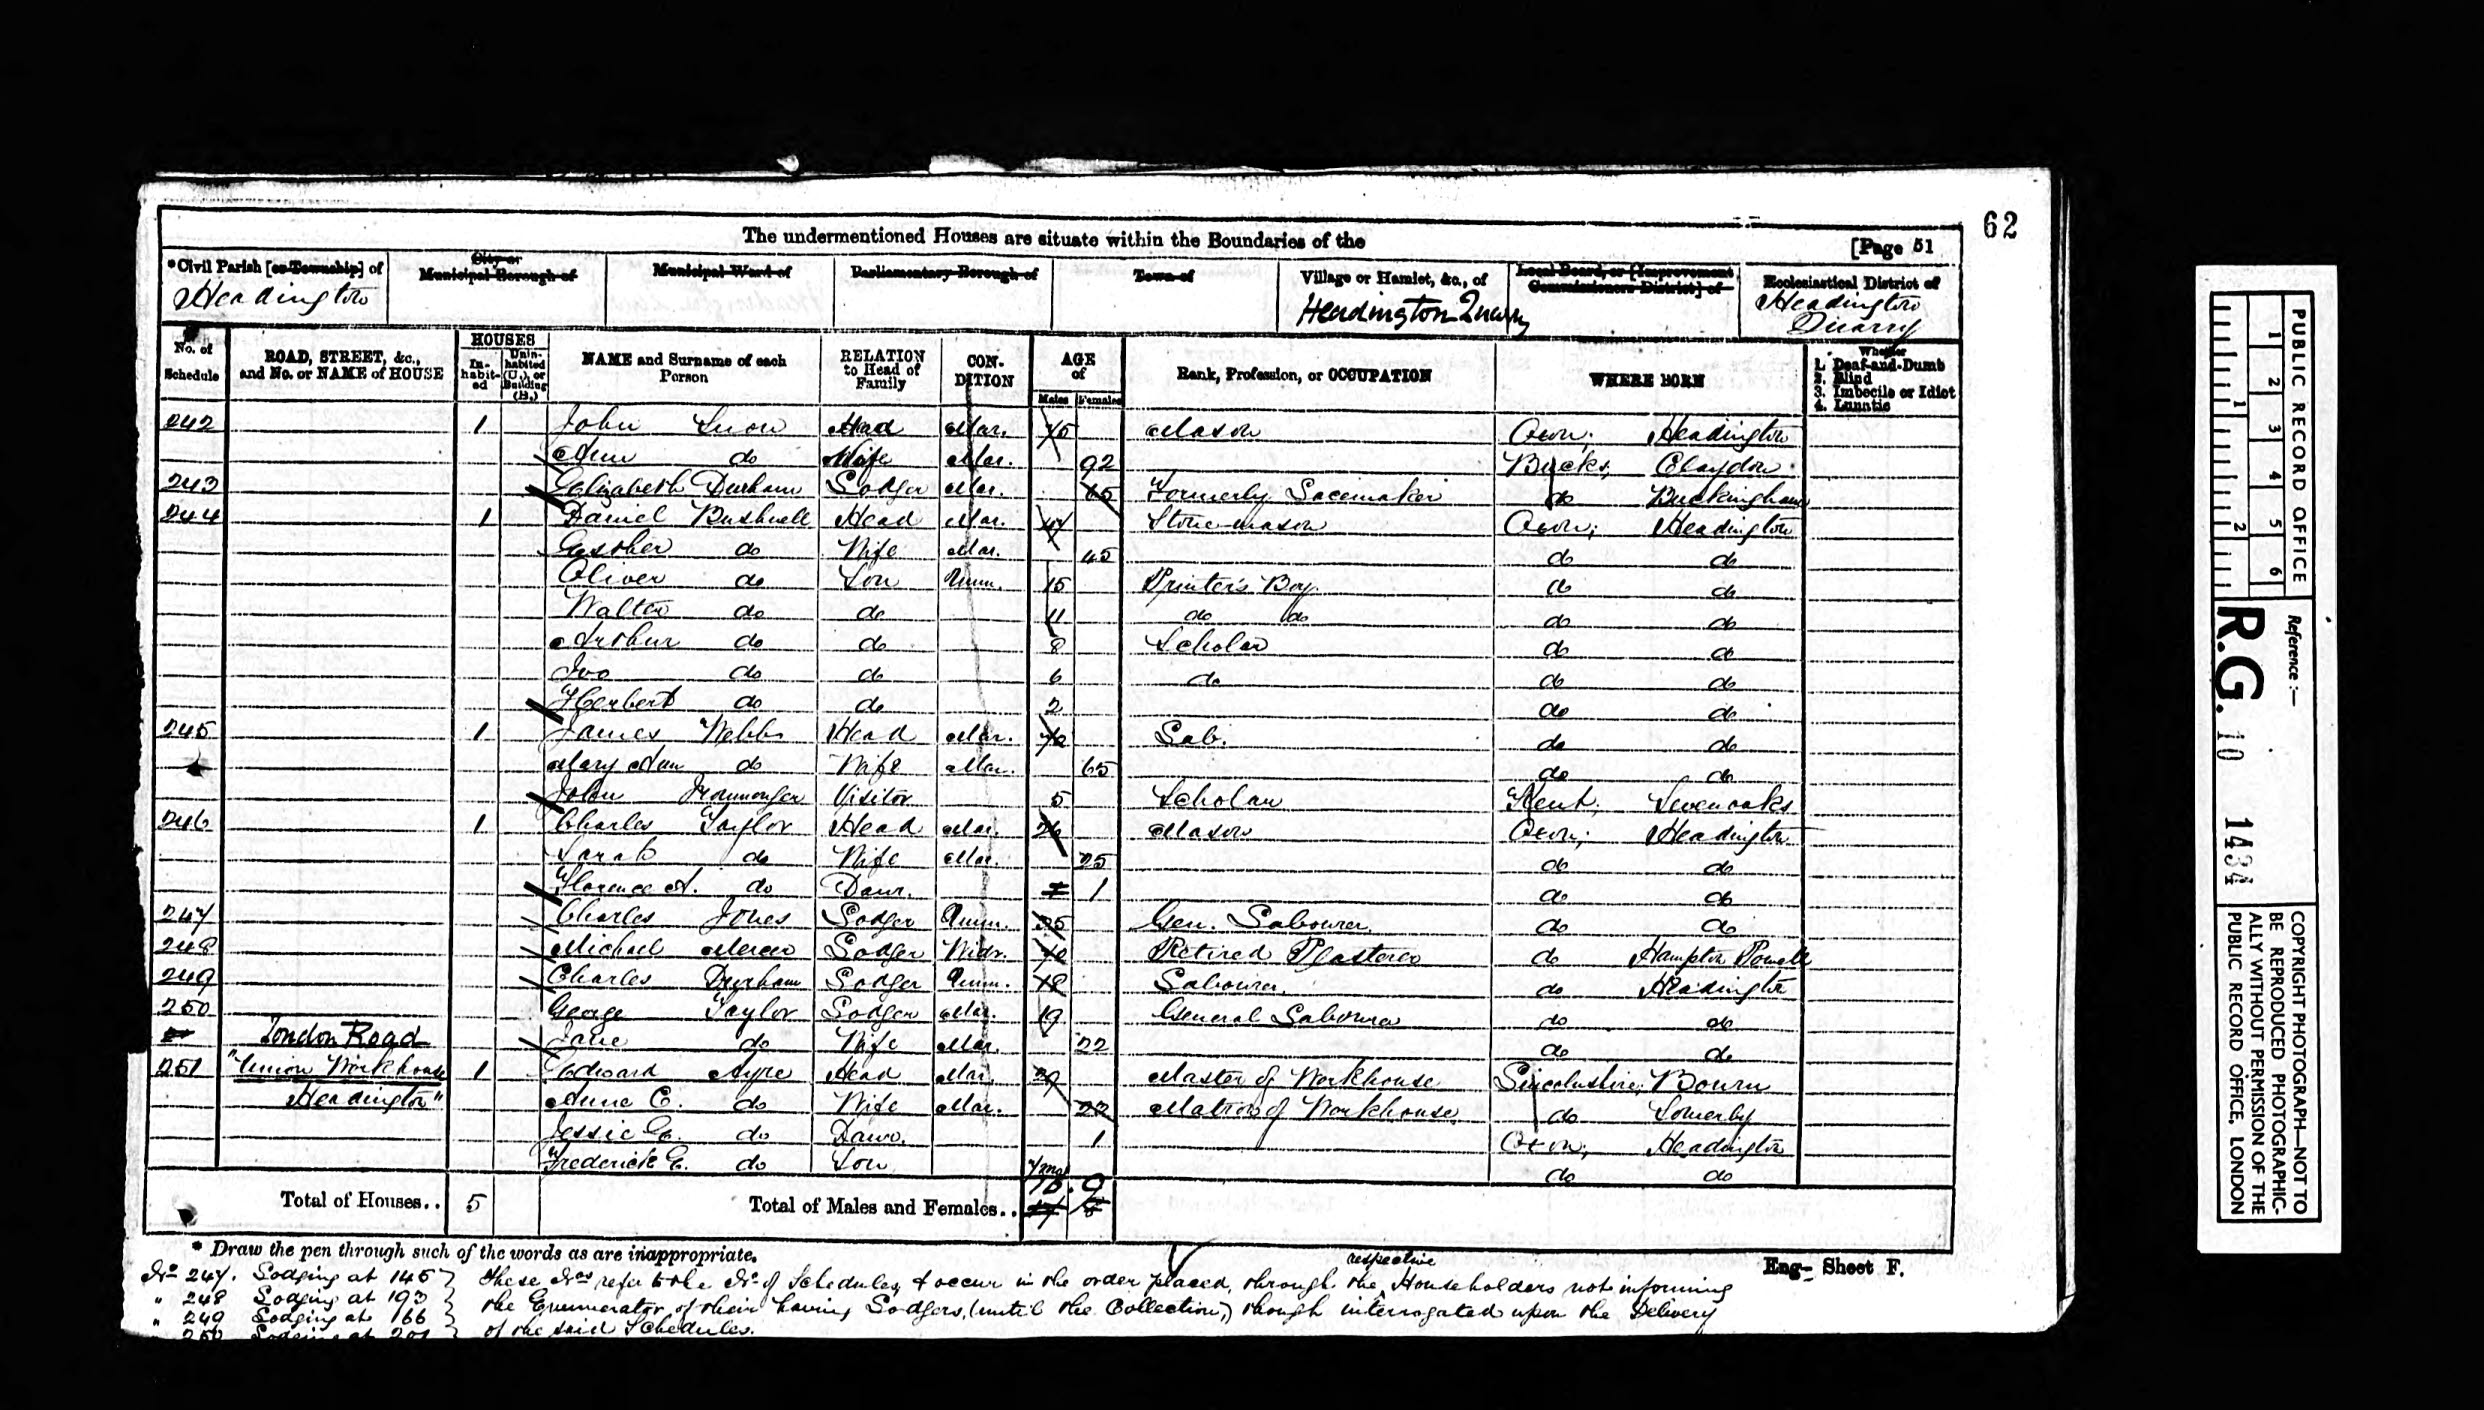 62
The undermentioned Houses are situate within the Boundaries of the [Page 51
*Civil Parish [or Township] of Headington
City or Municipal Borough of
Municipal Ward of
Parliamentary Borough of
Town of
Village or Hamlet, &c., of Headington Quarry
Local Board, or [Improvement Commissioners District] of
Ecclesiastical District of Headington Quarry
No. of Schedule
ROAD, STREET, &c., and No. or NAME of HOUSE
HOUSES
In-habit-ed
Unin-habited (U.), or Building (B.)
NAME and Surname of each Person
RELATION to Head of Family
CON-DITION
AGE of
Males Females
Rank, Profession, or OCCUPATION
WHERE BORN
Whether
1. Deaf-and-Dumb
2. Blind
3. Imbecile or Idiot
4. Lunatic
242 1 John Head Mar. Mason Oxon; Headington
Ann do Wife Mar. Bucks; Claydon
243 Elizabeth Durham Lodger Mar. 65 Formerly Lacemaker do Buckingham
244 1 Daniel Bushnell Head Mar. 47 Stone mason Oxon; Headington
Esther do Wife Mar. 45 do do
Oliver do Son Unm. 15 Printer's Boy do do
Walter do do 11 do do do do
Arthur do do 8 Scholar do do
Ivo do do 6 do do do
Herbert do do 2 do do
245 1 James Webb Head Mar. 70 Lab. do do
Mary Ann do Wife Mar. 65 do do
John Ironmonger Visitor 5 Scholar Kent; Sevenoaks
246 1 Charles Taylor Head Mar. 26 Mason Oxon; Headington
Sarah do Wife Mar. 25 do do
Florence A. do Daur. 1 do do
247 Charles Jones Lodger Unm. 35 Gen. Labourer do do
248 Michael Mercer Lodger Widr. 70 Retired Plasterer do Hampton Powell
249 Charles Durham Lodger Unm. 18 Labourer do Headington
250 George Taylor Lodger Mar. 19 General Labourer do do
London Road Jane do Wife Mar. 22 do do
251 "Union Workhouse 1 Edward Ayre Head Mar. 29 Master of Workhouse Lincolnshire; Bourn
Headington" Anne C. do Wife Mar. Matron of Workhouse do Somerby
Jessie E. do Daur. 1 Oxon; Headington
Frederick E. do Son 7 mos do do
Total of Houses.. 5 Total of Males and Females.. 9
* Draw the pen through such of the words as are inappropriate.
Eng- Sheet F.
No 247. Lodging at 145 } these Nos refer to the No of Schedules, & occur in the order placed, through the respective Householders not informing
" 248 Lodging at 193 } the Enumerator of their having Lodgers, (until the Collection,) though interrogated upon the Delivery
" 249 Lodging at 166 } of the said Schedules.
250 Lodging at 201 }
PUBLIC RECORD OFFICE
1 2 3 4 5 6
1 2
Reference:—
R.G. 10 1434
COPYRIGHT PHOTOGRAPH—NOT TO
BE REPRODUCED PHOTOGRAPHIC-
ALLY WITHOUT PERMISSION OF THE
PUBLIC RECORD OFFICE, LONDON